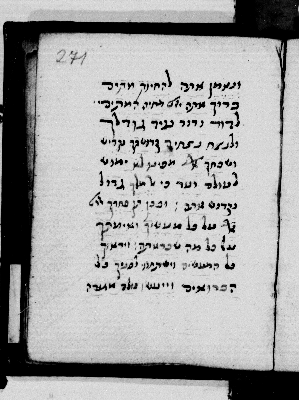 271
ונאמן אתה להחיות מתים
ברוך אתה יי׳ מחיה המתים
לדור ודור נגיד גודלך
ולנצח נצחים קדושתך נקדיש
ושבחך מפינו לא ימוש
לעולם ועד כי מלך גדול
וקדוש אתה ובכן תן פחדך
על כל מעשיך ואימתך
על כל מה שבראת וייראוך
כל המעשים וישתחוו לפניך כל
הברואים ויעשו כולם אגודה